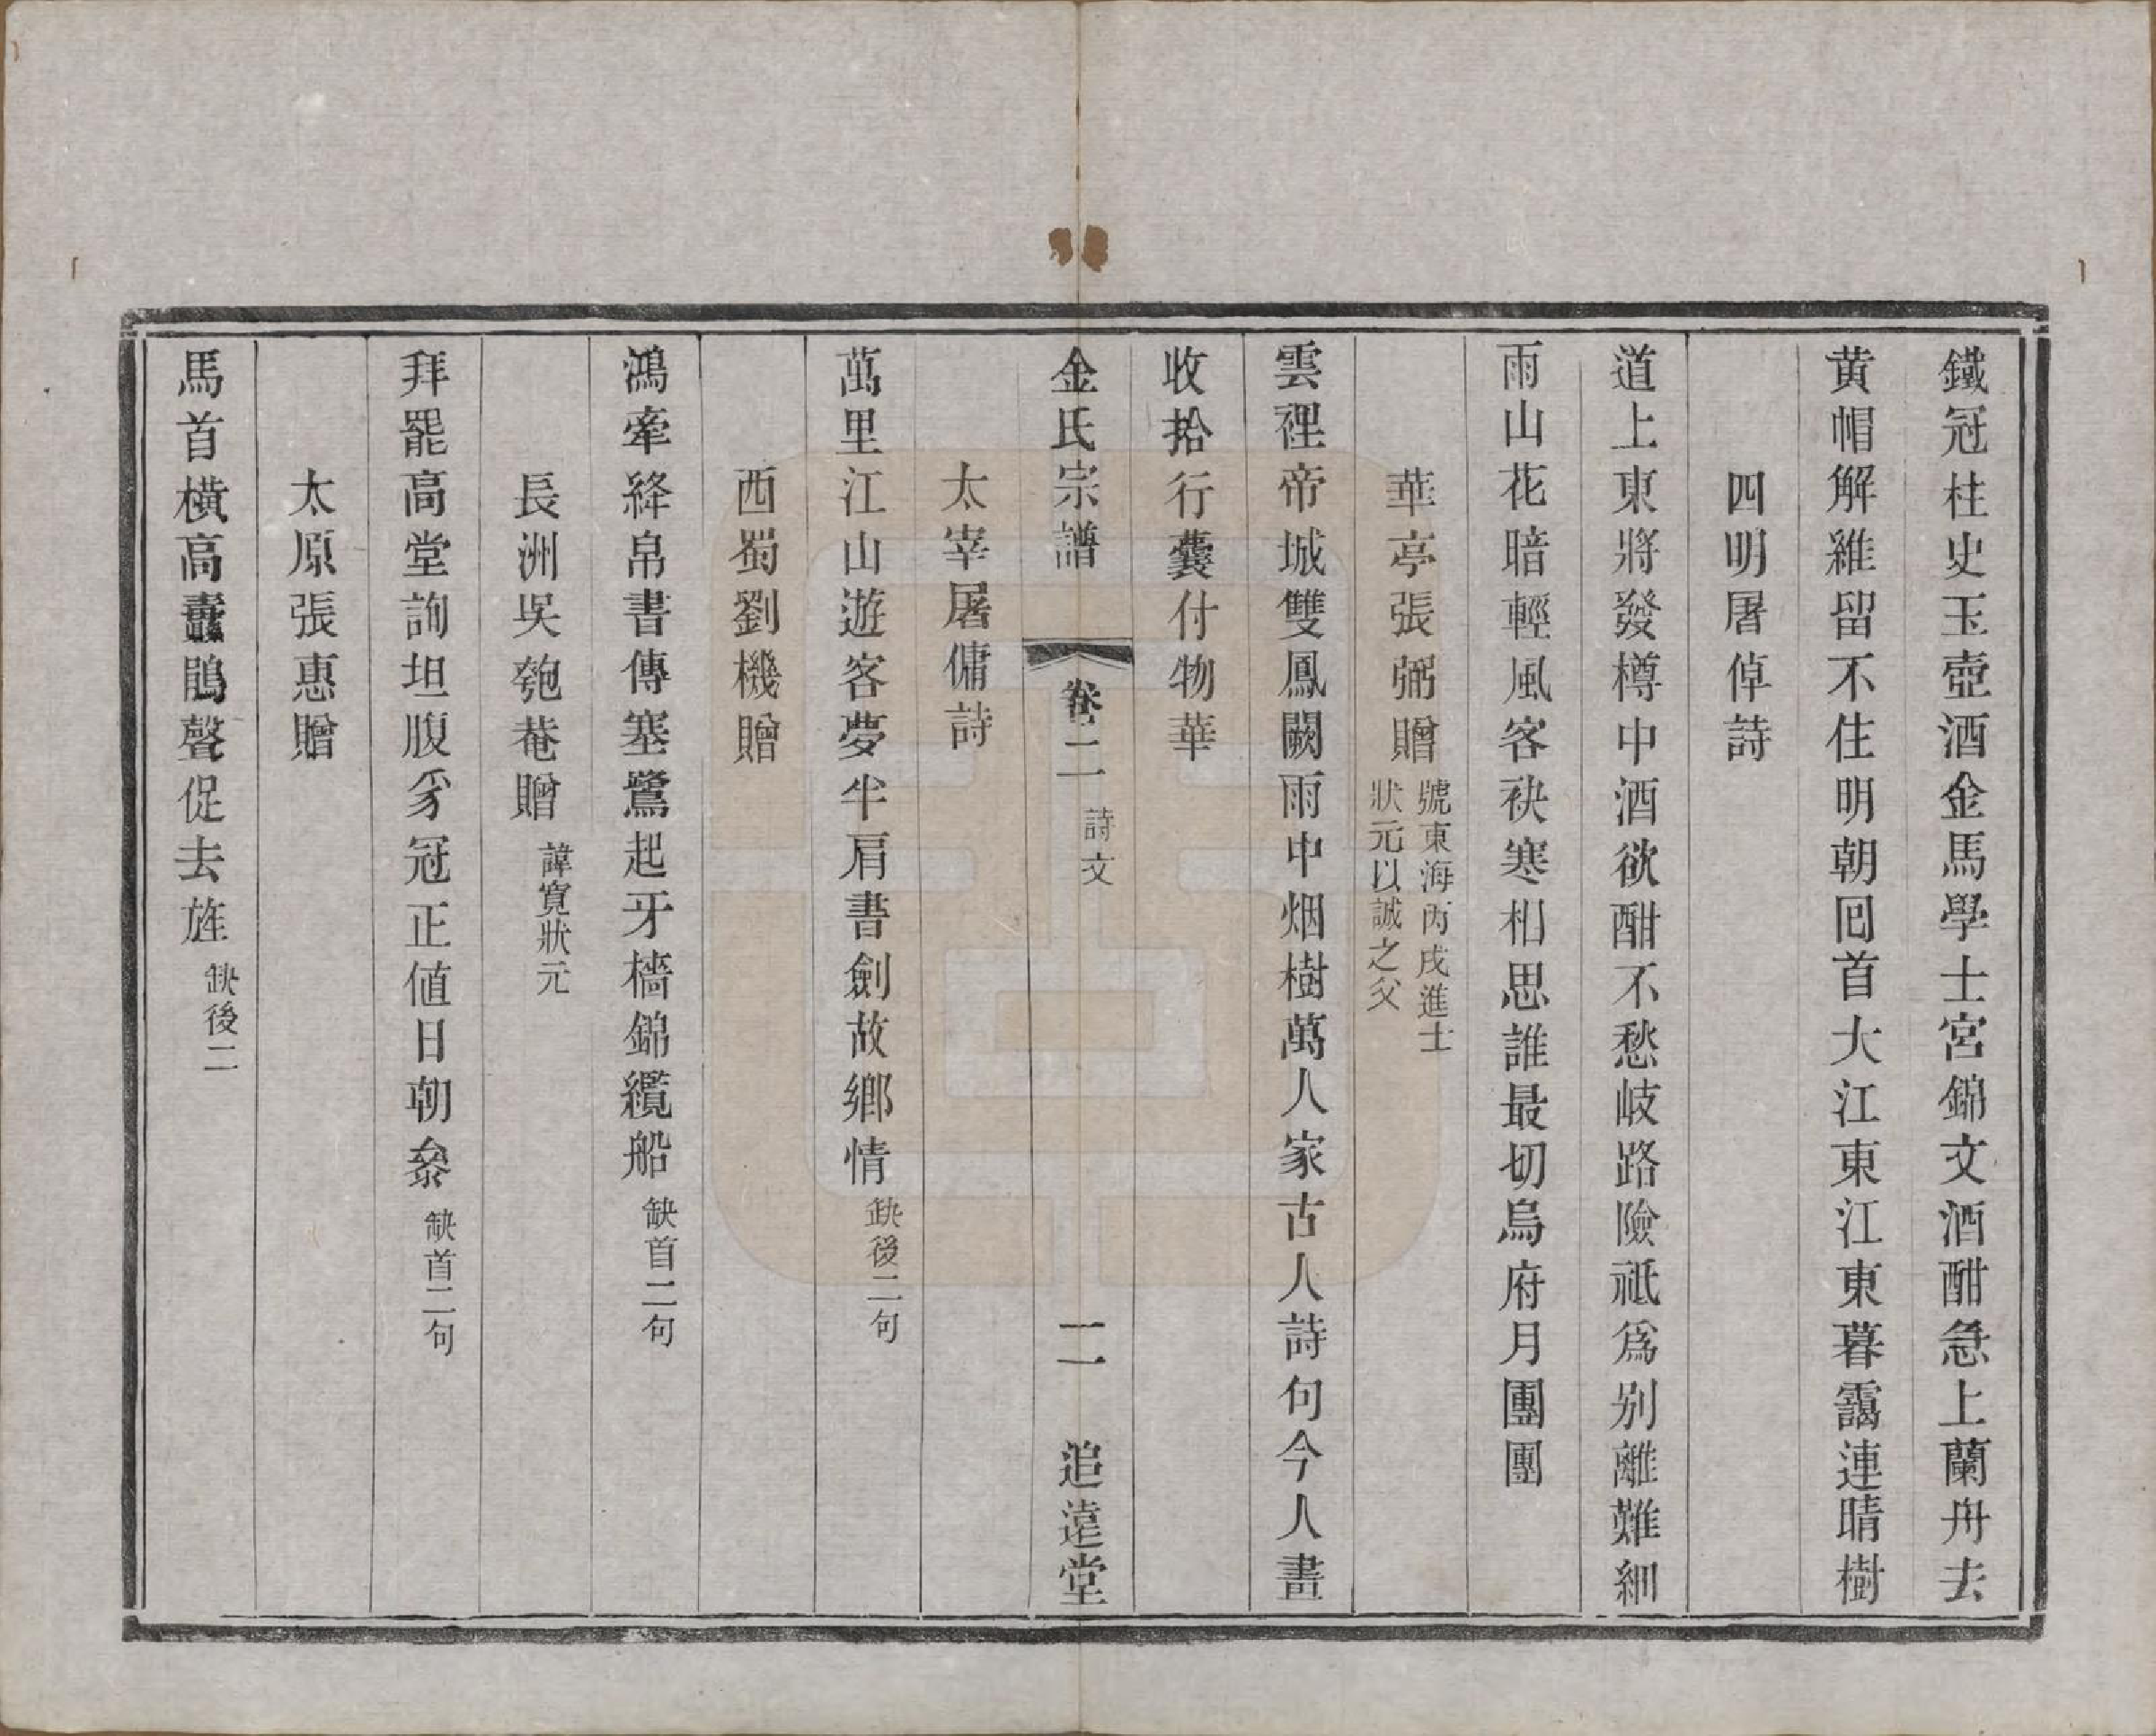 鐵冠柱史玉壺酒金馬學士宮錦文酒酣急上蘭舟去
黃帽解維留不住明朝囘首大江東江東暮靄連晴樹
四明屠倬詩
道上東將發樽中酒欲酣不愁岐路險祇爲别離難細
雨山花暗輕風客袂寒相思誰最切烏府月團團
華亭張弼贈
號東海丙戌進士
狀元以誠之父
雲裡帝城雙鳳闕雨中烟樹萬人家古人詩句今人畫
收拾行囊付物華
金氏宗譜 卷二 詩文 二 追遠堂
太宰屠傭詩
萬里江山遊客夢半肩書劍故鄉情 缺後二句
西蜀劉機贈
鴻牽絳帛書傳塞鷺起牙檣錦纜船 缺首二句
長洲吳匏菴贈 諱寬狀元
拜罷高堂詢坦腹豸冠正値日朝參 缺首二句
太原張惠贈
馬首橫高纛鵑聲促去旌 缺後二